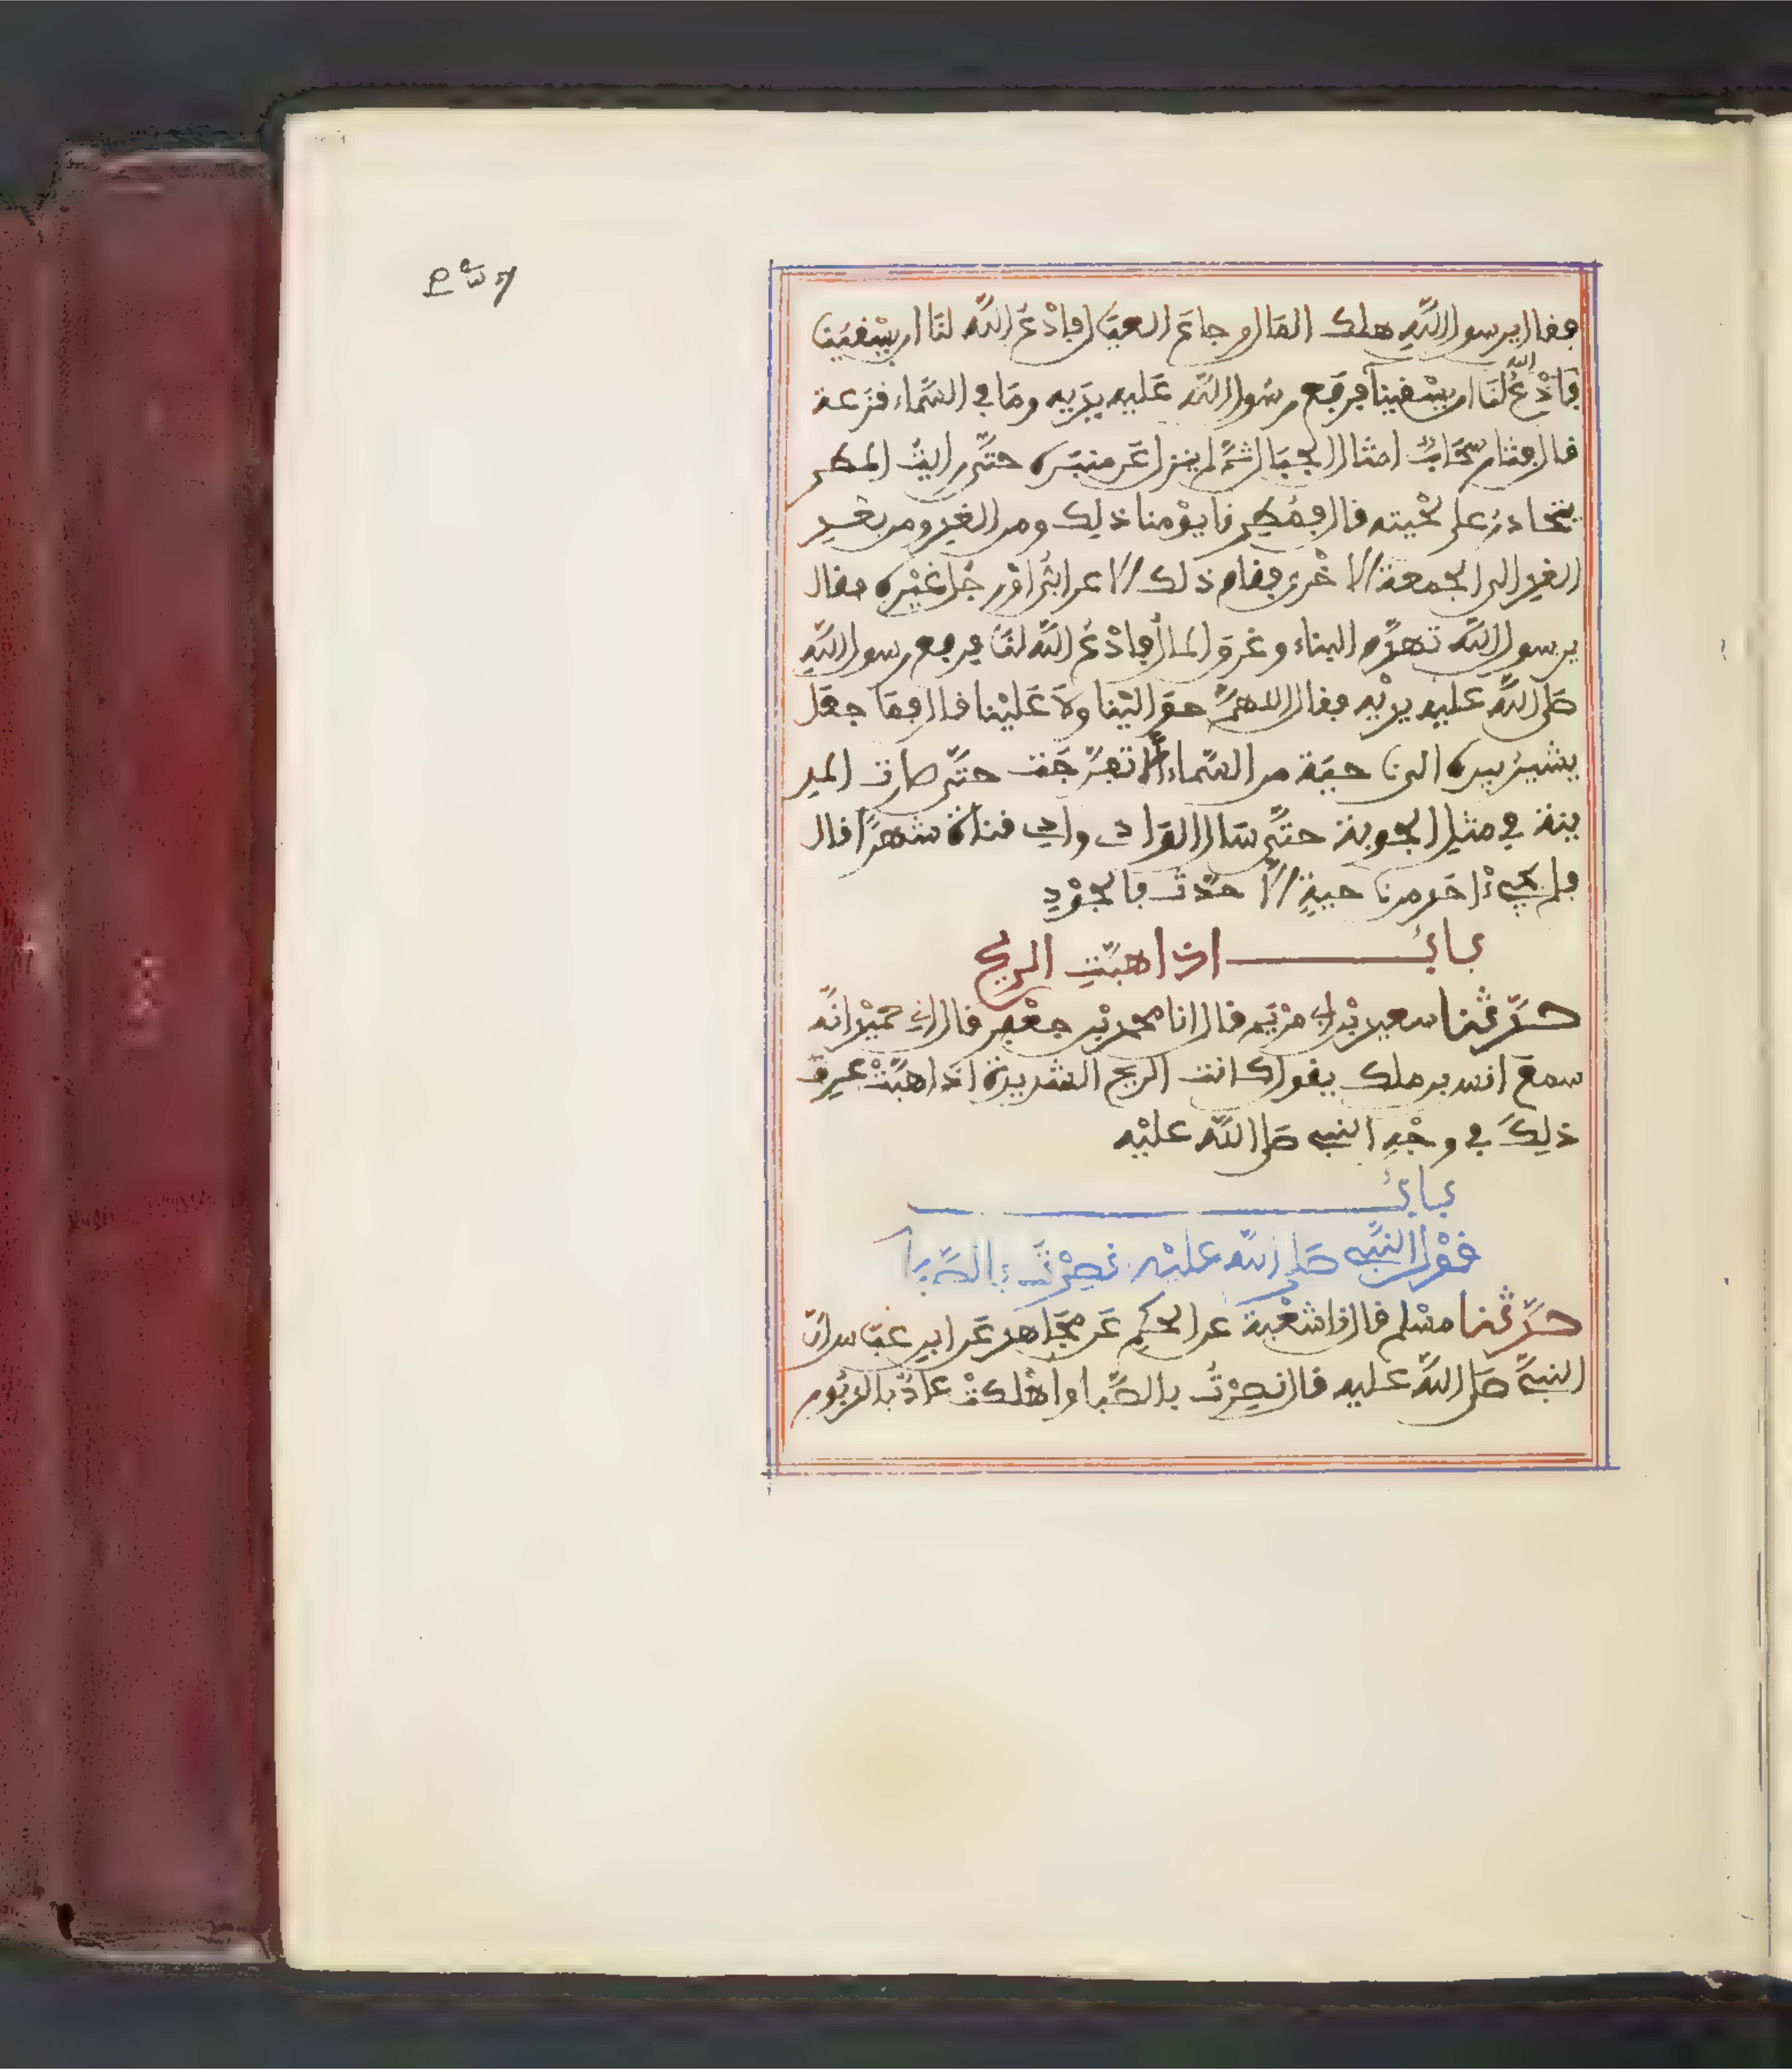 فقال يرسول الله هلك المال وجاع العيال فادع الله لنا ان يسقينا
فادع الله لنا ان يسقينا فرفع رسول الله عليه يديه وما في السماء قزعة
قال فثار سحاب امثال الجبال ثم لم ينزل عن منبره حتى رايت المطر
يتحادر على لحيته قال فمطرنا يومنا ذلك ومن الغد ومن بعد
الغد الى الجمعة الاخرى فقام ذلك الاعرابي او رجل غيره فقال
يرسول الله تهدم البناء وغرق المال فادع الله لنا فرفع رسول الله
صلى الله عليه يديه فقال اللهم حوالينا ولا علينا قال فما جعل
يشير بيده الى ناحية من السماء الا تفرجت حتى صارت المد
ينة في مثل الجوبة حتى سال الوادي وادي قناة شهرا قال
فلم يجيء احد من ناحية الا حدث بالجود
باب اذا هبت الريح
حدثنا سعيد بن ابي مريم قال انا محمد بن جعفر قال اني حميد انه
سمع انس بن ملك يقول كانت الريح الشديدة اذا هبت عرف
ذلك في وجه النبي صلى الله عليه
باب
قول النبي صلى الله عليه نصرت بالصبا
حدثنا مسلم قال نا شعبة عن الحكم عن مجاهد عن ابن عباس ان
النبي صلى الله عليه قال نصرت بالصبا واهلكت عاد بالدبور